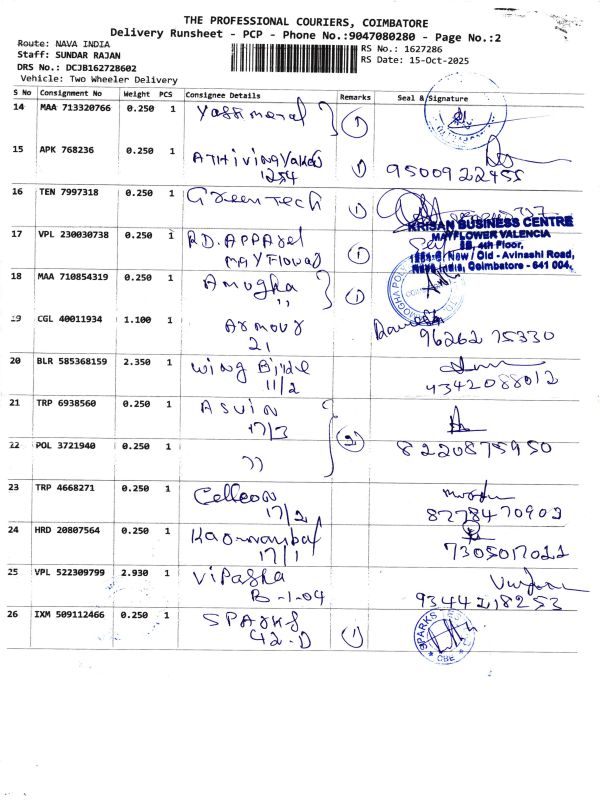 THE PROFESSIONAL COURIERS, COIMBATORE
Delivery Runsheet - PCP - Phone No.:9047080280 - Page No.:2
Route: NAVA INDIA
Staff: SUNDAR RAJAN
DRS No.: DCJB162728602
Vehicle: Two Wheeler Delivery
RS No.: 1627286
RS Date: 15-Oct-2025
S No Consignment No Weight PCS Consignee Details Remarks Seal & Signature
14 MAA 713320766 0.250 1 1
15 APK 768236 0.250 1 1 9500922455
1254
16 TEN 7997318 0.250 1 Green Tech 1
KRISAN BUSINESS CENTRE
MAYFLOWER VALENCIA
4th Floor,
New / Old - Avinashi Road,
Nava India, Coimbatore - 641 004.
17 VPL 230030738 0.250 1 R.D. APPArel 1
MAYFlower
18 MAA 710854319 0.250 1 Amogha 1
"
19 CGL 40011934 1.100 1 Armour 96262 75330
21
20 BLR 585368159 2.350 1 wing 4342088012
11/2
21 TRP 6938560 0.250 1 ASWIN 2
17/3
22 POL 3721940 0.250 1 " 8220875950
23 TRP 4668271 0.250 1 Celleon 8778470902
17/2
24 HRD 20807564 0.250 1 7305017022
17/1
25 VPL 522309799 2.930 1 VIPASHA 9344218253
B-1-04
26 IXM 509112466 0.250 1 SPARKS 1
42-D
SPARKS
CBE